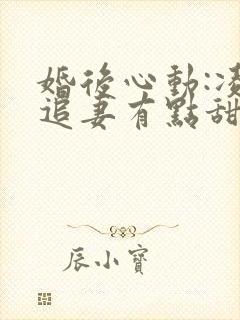 婚後心動:凌
追妻有點甜
辰小寶